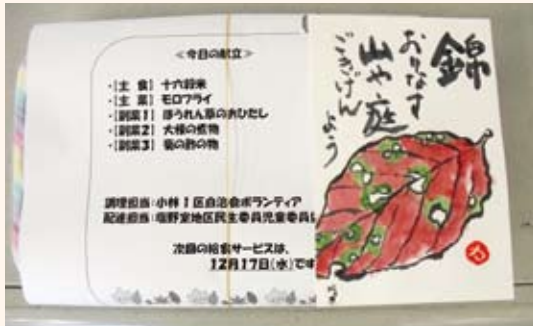 <今日の献立>
・[主 食] 十六穀米
・[主 菜] モロフライ
・[副菜1] ほうれん草のおひたし
・[副菜2] 大根の煮物
・[副菜3] 菊の酢の物
調理担当:小林1区自治会ボランティア
配達担当:塩野室地区民生委員児童委員
次回の給食サービスは、
12月17日(水)です
錦
おりなす
山や庭
ごきげん
よう